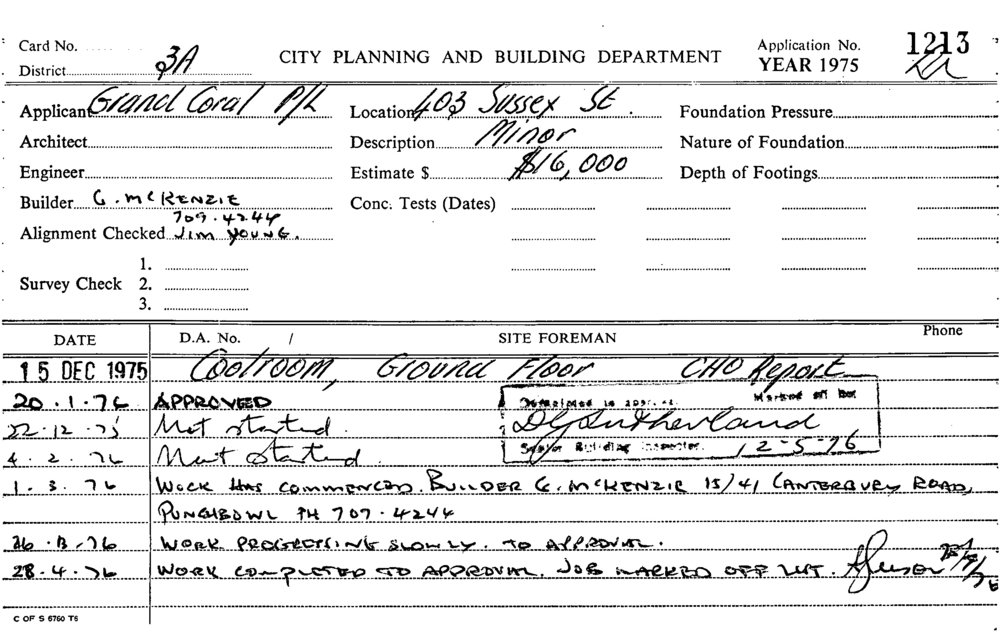 Card No.
District 3A
CITY PLANNING AND BUILDING DEPARTMENT
Application No. 1213
YEAR 1975
Applicant Grand Coral P/L
Location 403 Sussex St.
Foundation Pressure
Architect
Description Minor
Nature of Foundation
Engineer
Estimate $ $16,000
Depth of Footings
Builder G. McKENZIE
709.4244
Conc. Tests (Dates)
Alignment Checked JIM YOUNG.
Survey Check
1.
2.
3.
DATE
D.A. No. /
SITE FOREMAN
Phone
15 DEC 1975 Coolroom, Ground Floor CHO Report
20.1.76 APPROVED
22.12.75 Not started.
4.2.76 Not Started.
Marked off
D G Sutherland
Senior Building Inspector. 12-5-76
1.3.76 WORK HAS COMMENCED. BUILDER G. McKENZIE 15/41 CANTERBURY ROAD,
PUNCHBOWL PH 709.4244
WORK PROGRESSING SLOWLY. TO APPROVAL.
28.4.76 WORK COMPLETED TO APPROVAL. JOB MARKED OFF
C OF S 6760 T6